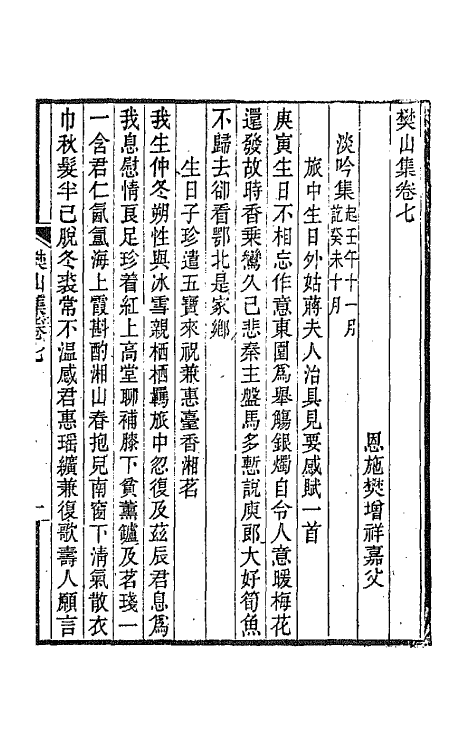 樊山集卷七
恩施樊增祥嘉父
淡吟集起壬午十一月訖癸未十月
旅中生日外姑蔣夫人治具見要感賦一首
庚寅生日不相忘作意東園爲舉觴銀燭自令人意暖梅花
還發故時香乘鸞久已悲秦主盤馬多慙說庾郎大好筍魚
不歸去卻看鄂北是家鄉
生日子珍遣五寶來祝兼惠臺香湘茗
我生仲冬朔性與冰雪親栖栖羈旅中忽復及茲辰君息爲
我息慰情良足珍着紅上高堂聊補膝下貧薰鑪及茗琖一
一含君仁氤氳海上霞斟酌湘山春抱兒南窗下清氣散衣
巾秋髮半已脫冬裘常不溫感君惠瑶纊兼復歌壽人願言
樊山集卷七
一